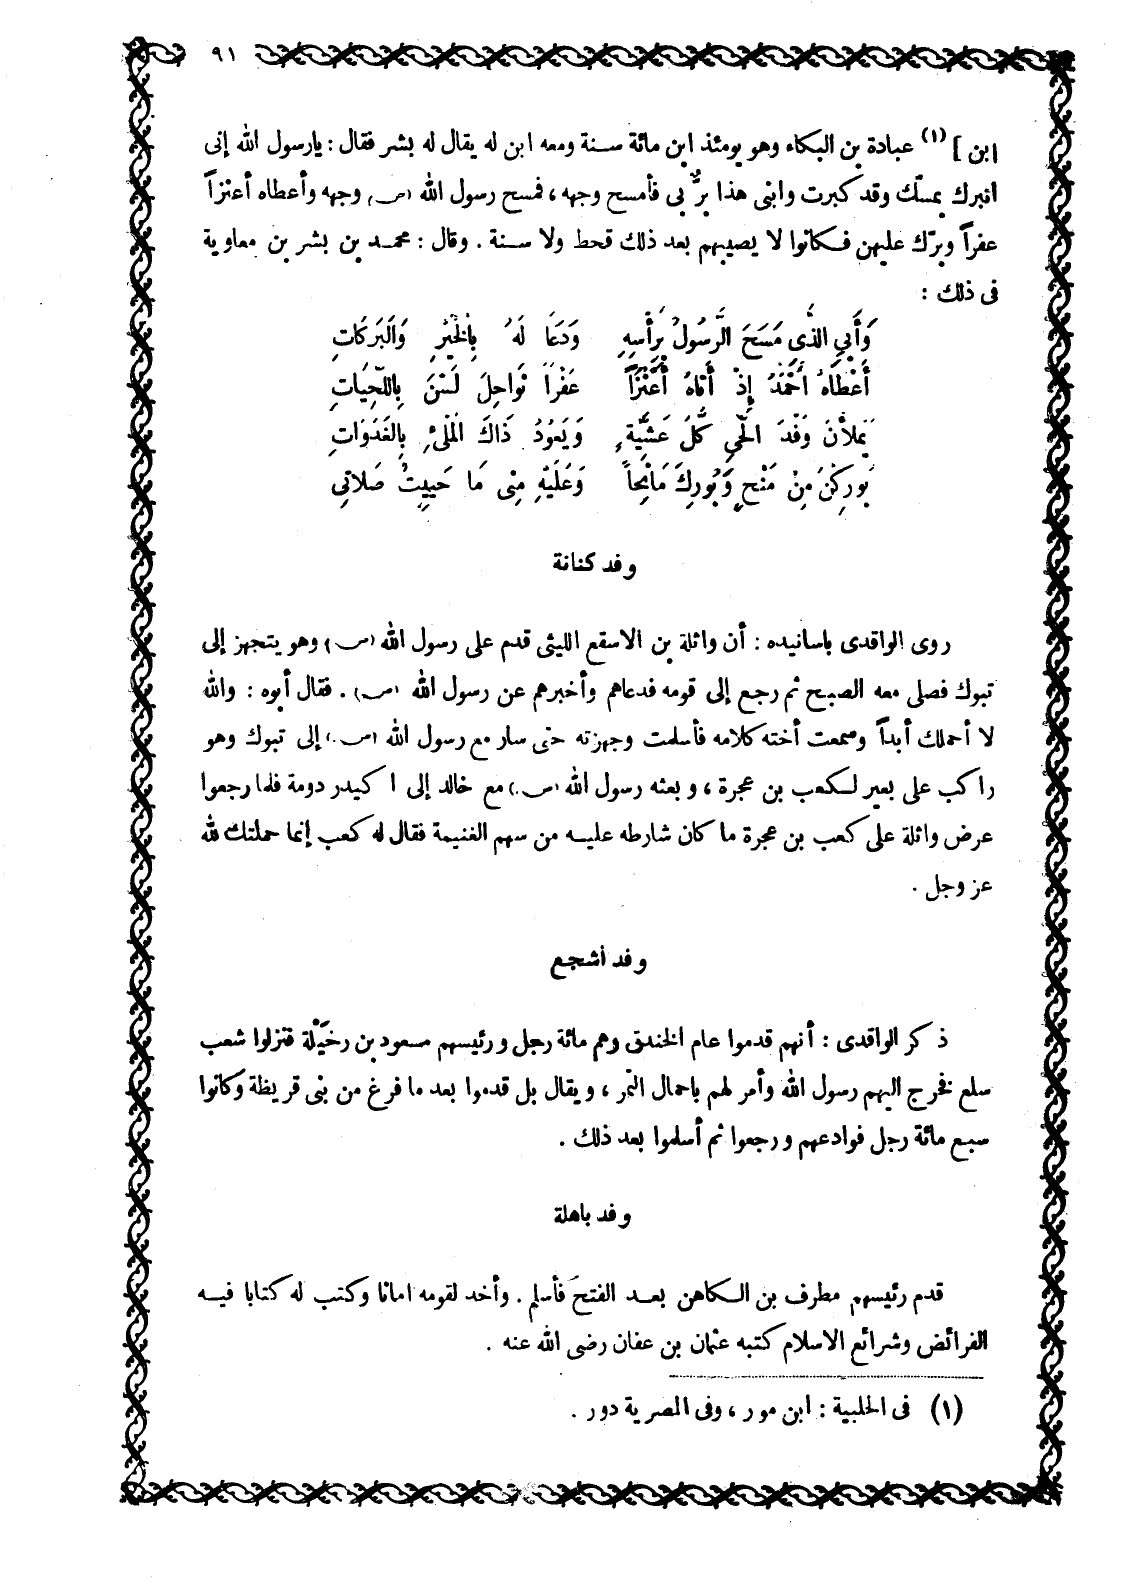 ٩١
ابن ] (١) عبادة بن البكاء وهو يومئذ ابن مائة سنة ومعه ابن له يقال له بشر فقال : يارسول الله إنى
اتبرك بمسّك وقد كبرت وابنى هذا برٌّ بى فأمسح وجهه ، فمسح رسول الله (ص) وجهه وأعطاه أعنزاً
عفراً وبرّك عليهن فكانوا لا يصيبهم بعد ذلك قحط ولا سنة . وقال : محمد بن بشر بن معاوية
فى ذلك :
وَأَبِى الذَّى مَسَحَ الرَّسُولُ بِرَأْسِهِ وَدَعَا لَهُ بِالْخَيْرِ وَالْبَرَكَاتِ
أَعْطَاهُ أَحْمَدُ إِذْ أَتَاهُ أَعْنُزَاً عَفْرَاً نَوَاحِلَ لَسْنَ بِاللَّحِيَاتِ
يَملأْنَ وَفْدَ الْحَىِ كُلَّ عَشَّيِةٍ وَيَعُودُ ذَاكَ الْمَلْىءِ بِالغَدَوَاتِ
بُورِكْنَ مِنْ مَنْحٍ وَبُورِكَ مَانِحَاً وَعَلَيْهِ مِنِّى مَا حَيِيِتْ صَلاَتِى
وفد كنانة
روى الواقدى باسانيده : أن واثلة بن الاسقع الليثى قدم على رسول الله (ص) وهو يتجهز إلى
تبوك فصلى معه الصبح ثم رجع إلى قومه فدعاهم وأخبرهم عن رسول الله (ص) . فقال أبوه : والله
لا أحملك أبداً وسمعت أخته كلامه فأسلمت وجهزته حتى سار مع رسول الله (ص) إلى تبوك وهو
راكب على بعير لكعب بن عجرة ، وبعثه رسول الله (ص) مع خالد إلى اكيدر دومة فلما رجعوا
عرض واثلة على كعب بن عجرة ما كان شارطه عليه من سهم الغنيمة فقال له كعب إنما حملتك لله
عز وجل .
وفد أشجع
ذكر الواقدى : أنهم قدموا عام الخندق وهم مائة رجل ورئيسهم مسعود بن رخَيْلة فنزلوا شعب
سلع فخرج اليهم رسول الله وأمر لهم باحمال التمر ، ويقال بل قدموا بعد ما فرغ من بنى قريظة وكانوا
سبع مائة رجل فوادعهم ورجعوا ثم أسلموا بعد ذلك .
وفد باهلة
قدم رئيسهم مطرف بن الكاهن بعد الفتح فأسلم . وأخد لقومه امانا وكتب له كتابا فيه
الفرائض وشرائع الاسلام كتبه عثمان بن عفان رضى الله عنه .
(١) فى الحلبية : ابن مور ، وفى المصرية دور .